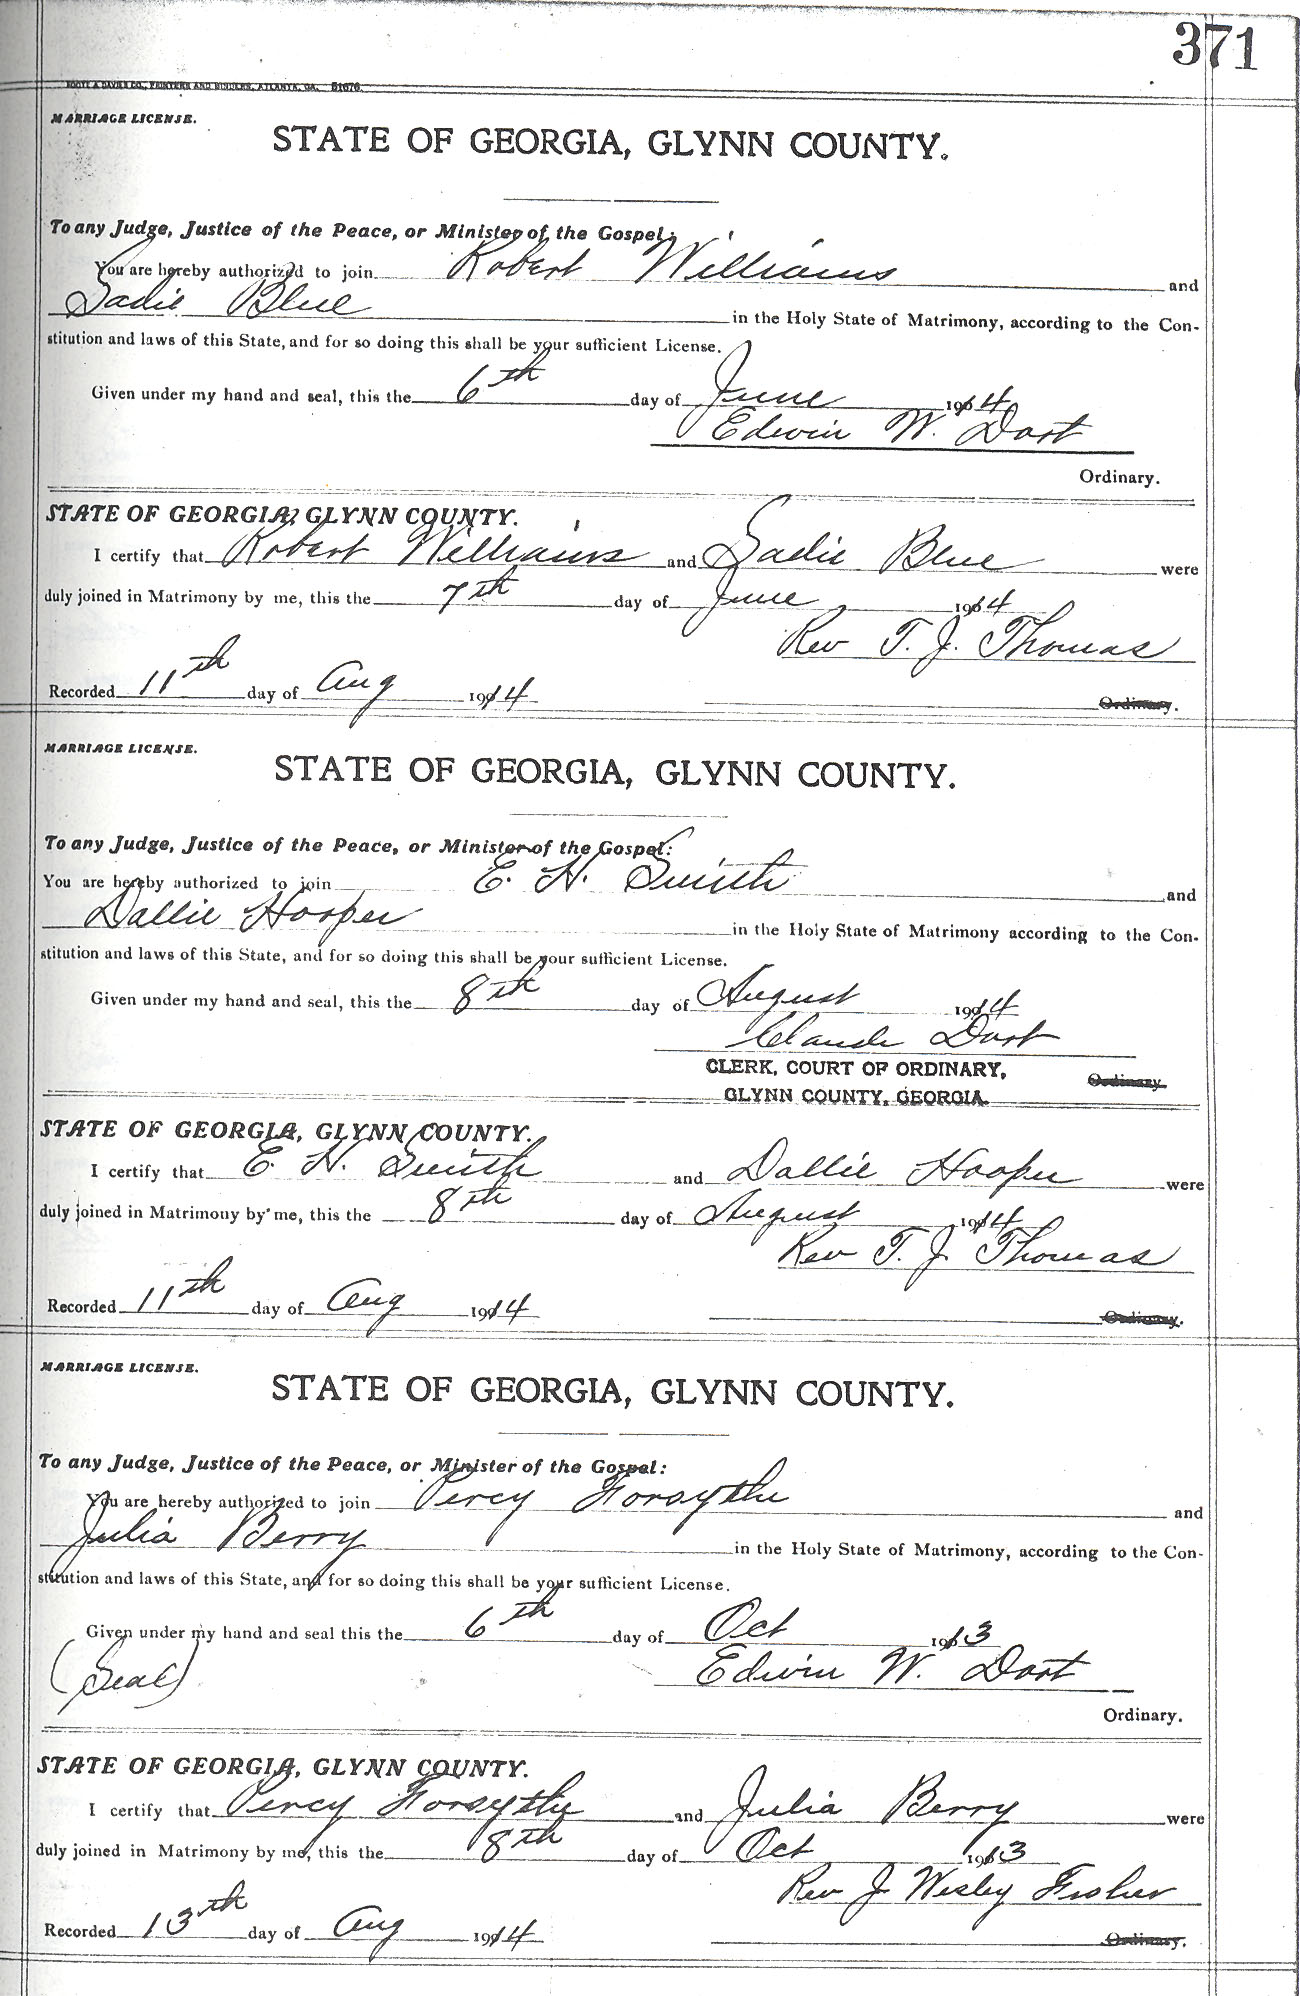 371
FOOTE & DAVIES CO., PRINTERS AND BINDERS, ATLANTA, GA. 51676
MARRIAGE LICENSE.
STATE OF GEORGIA, GLYNN COUNTY.
To any Judge, Justice of the Peace, or Minister of the Gospel:
You are hereby authorized to join Robert Williams and
Sadie Blue in the Holy State of Matrimony, according to the Con-
stitution and laws of this State, and for so doing this shall be your sufficient License.
Given under my hand and seal, this the 6th day of June 1914
Edwin W. Dart
Ordinary.
STATE OF GEORGIA, GLYNN COUNTY.
I certify that Robert Williams and Sadie Blue were
duly joined in Matrimony by me, this the 7th day of June 1914
Rev T. J. Thomas
Recorded 11th day of Aug 1914 Ordinary.
MARRIAGE LICENSE.
STATE OF GEORGIA, GLYNN COUNTY.
To any Judge, Justice of the Peace, or Minister of the Gospel:
You are hereby authorized to join E. H. Smith and
Dallie Hooper in the Holy State of Matrimony according to the Con-
stitution and laws of this State, and for so doing this shall be your sufficient License.
Given under my hand and seal, this the 8th day of August 1914
Claude Dart
CLERK, COURT OF ORDINARY, Ordinary.
GLYNN COUNTY, GEORGIA.
STATE OF GEORGIA, GLYNN COUNTY.
I certify that E. H. Smith and Dallie Hooper were
duly joined in Matrimony by me, this the 8th day of August 1914
Rev T. J. Thomas
Recorded 11th day of Aug 1914 Ordinary.
MARRIAGE LICENSE.
STATE OF GEORGIA, GLYNN COUNTY.
To any Judge, Justice of the Peace, or Minister of the Gospel:
You are hereby authorized to join Percy Forsythe and
Julia Berry in the Holy State of Matrimony, according to the Con-
stitution and laws of this State, and for so doing this shall be your sufficient License.
Given under my hand and seal this the 6th day of Oct 1913
(Seal) Edwin W. Dart
Ordinary.
STATE OF GEORGIA, GLYNN COUNTY.
I certify that Percy Forsythe and Julia Berry were
duly joined in Matrimony by me, this the 8th day of Oct 1913
Rev J Wesley Fisher
Recorded 13th day of Aug 1914 Ordinary.